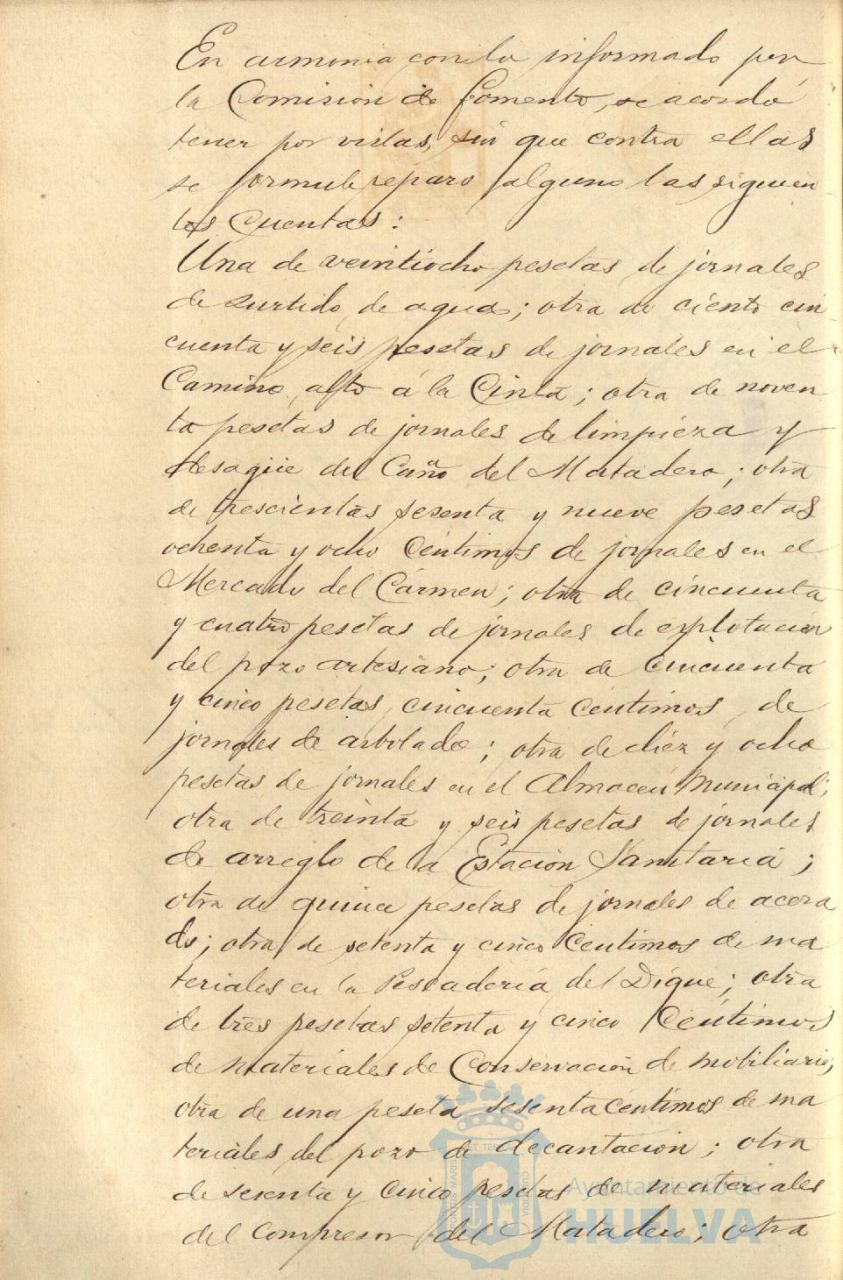 En armonia con lo informado por
la Comisión de fomento, se acordó
tener por vistas, sin que contra ellas
se formule reparo alguno las siguien
tes Cuentas:
Una de veintiocho pesetas de jornales
de surtido de agua; otra de ciento cin
cuenta y seis pesetas de jornales en el
Camino alto á la Cinta; otra de noven
ta pesetas de jornales de limpieza y
desagüe del Caño del Matadero; otra
de trescientas sesenta y nueve pesetas
ochenta y ocho Céntimos de jornales en el
Mercado del Cármen; otra de cincuenta
y cuatro pesetas de jornales de explotacion
del pozo artesiano; otra de cincuenta
y cinco pesetas, cincuenta Céntimos, de
jornales de arbolado; otra de diez y ocho
pesetas de jornales en el Almacen Municipal;
otra de treinta y seis pesetas de jornales
de arreglo de la Estación Sanitaria;
otra de quince pesetas de jornales de acera
do; otra de setenta y cinco Céntimos de ma
teriales en la Pescadería del Dique; otra
de tres pesetas setenta y cinco Céntimos
de materiales de Conservación de mobiliario;
otra de una peseta sesenta céntimos de ma
teriales del pozo de decantación; otra
de sesenta y cinco pesetas de materiales
del Compresor del Matadero; otra
Ayuntamiento de
HUELVA